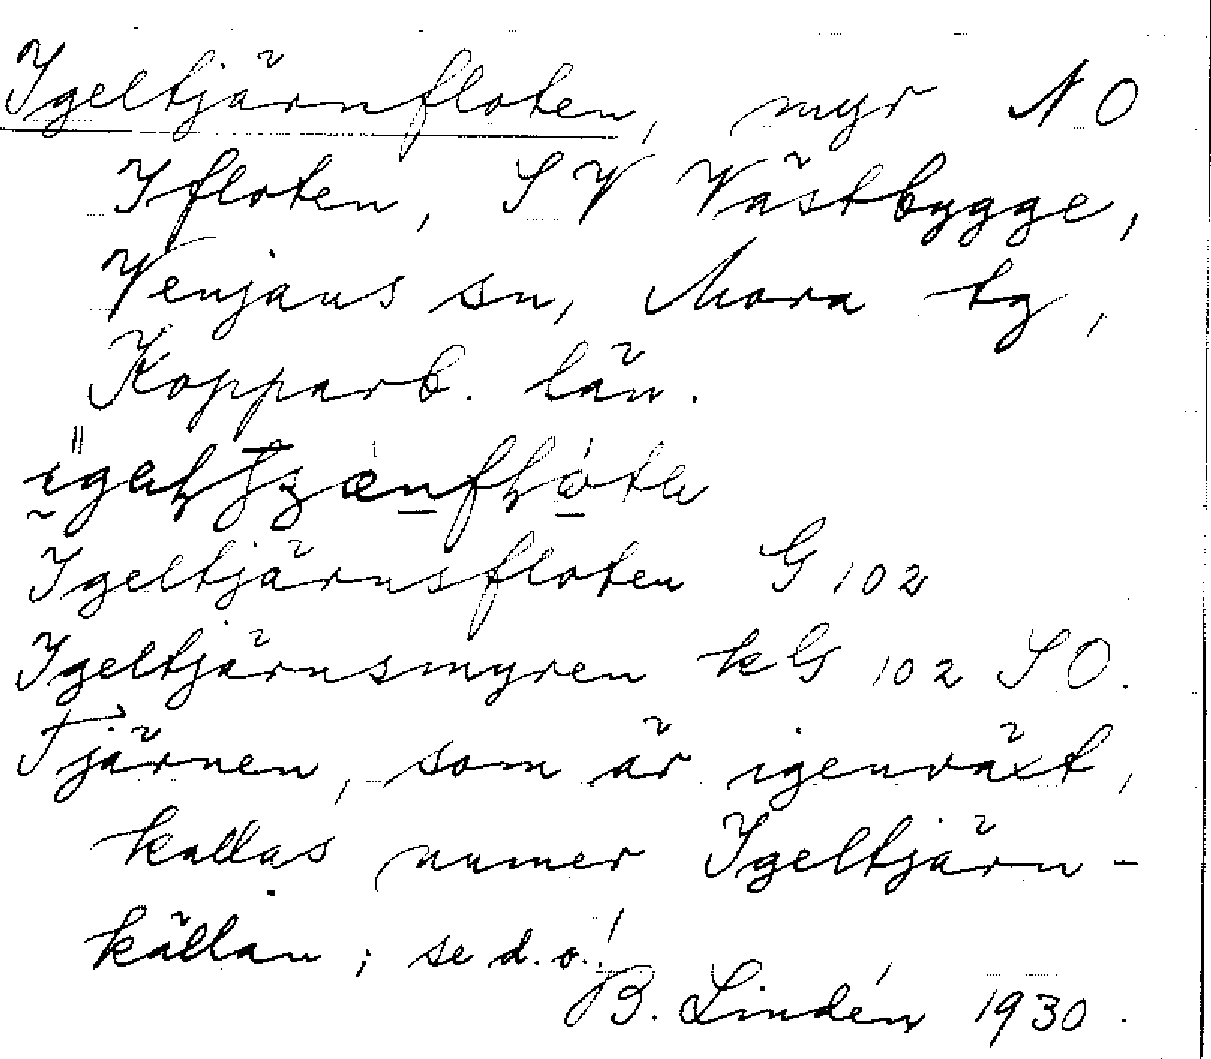 Igeltjärnfloten, myr NO
Ifloten, SV Västbygge,
Venjans sn, Mora tg,
Kopparb. län.
Igeltjärnsfloten G 102
Igeltjärnsmyren kG 102 SO.
Tjärnen, som är igenväxt,
kallas numer Igeltjärn-
källan; se d.o.!
B. Lindén 1930.